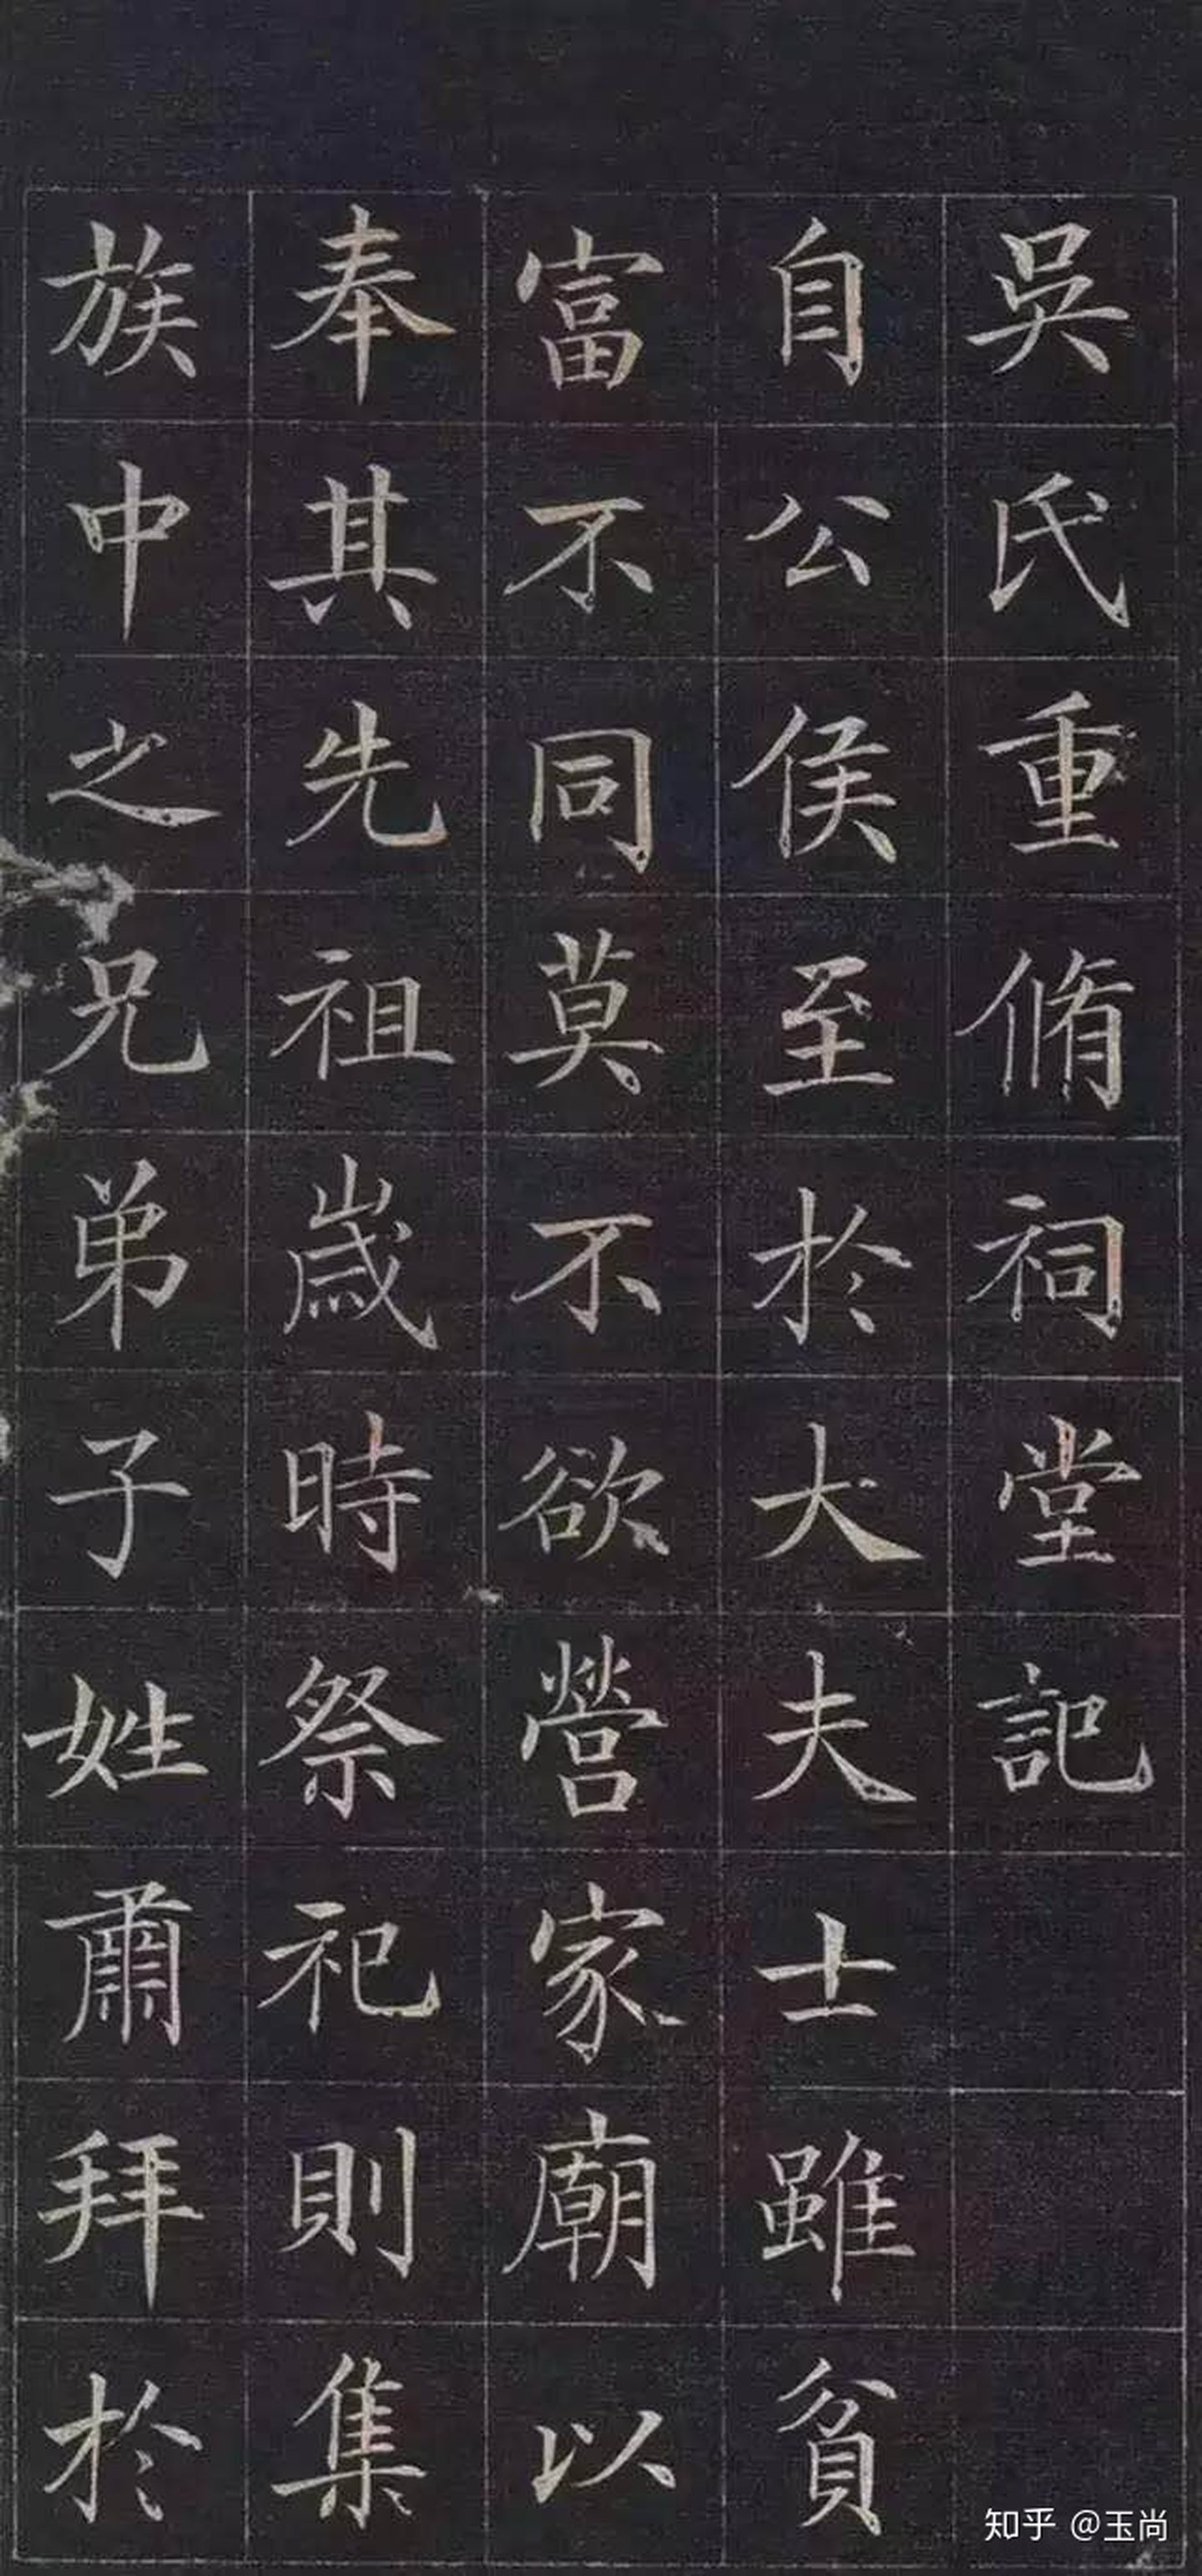 吳氏重脩祠堂記
自公侯至於大夫士雖貧
富不同莫不欲營家廟以
奉其先祖歲時祭祀則集
族中之兄弟子姓肅拜於
知乎 @玉尚